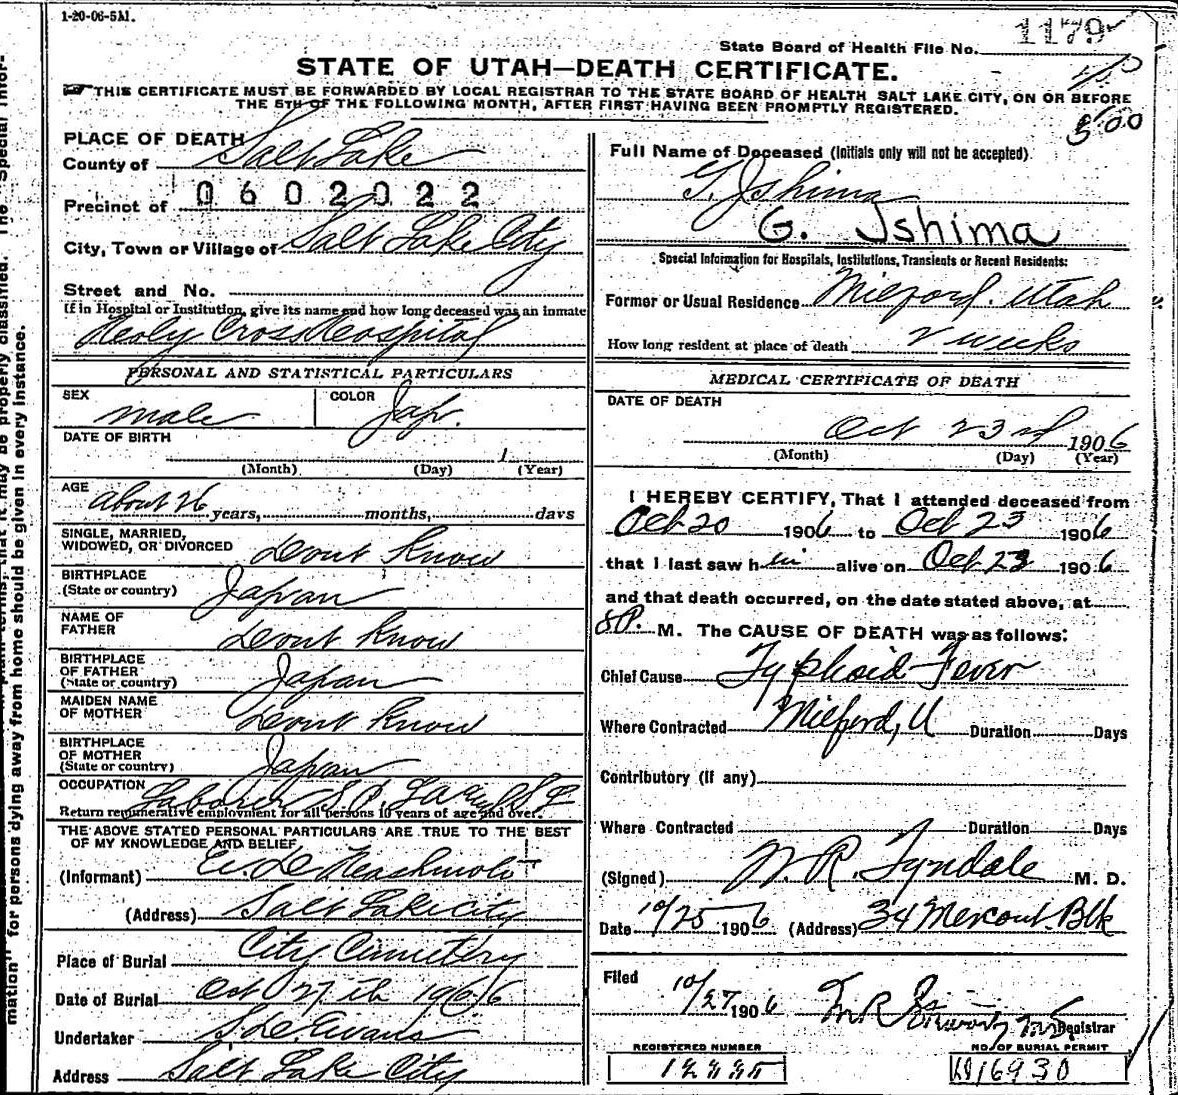 1-20-06-5M.
State Board of Health File No. 1179
STATE OF UTAH—DEATH CERTIFICATE.
THIS CERTIFICATE MUST BE FORWARDED BY LOCAL REGISTRAR TO THE STATE BOARD OF HEALTH SALT LAKE CITY, ON OR BEFORE
THE 5TH OF THE FOLLOWING MONTH, AFTER FIRST HAVING BEEN PROMPTLY REGISTERED.
500
PLACE OF DEATH
County of Salt Lake
Precinct of 0602022
City, Town or Village of Salt Lake City
Street and No.
If in Hospital or Institution, give its name and how long deceased was an inmate
Holy Cross Hospital
PERSONAL AND STATISTICAL PARTICULARS
SEX male COLOR Jap.
DATE OF BIRTH
1
(Month) (Day) (Year)
AGE about 26 years, months, days
SINGLE, MARRIED,
WIDOWED, OR DIVORCED Dont Know
BIRTHPLACE
(State or country) Japan
NAME OF
FATHER Dont Know
BIRTHPLACE
OF FATHER
(State or country) Japan
MAIDEN NAME
OF MOTHER Dont Know
BIRTHPLACE
OF MOTHER
(State or country) Japan
OCCUPATION Laborer S P.
Return remunerative employment for all persons 10 years of age and over.
THE ABOVE STATED PERSONAL PARTICULARS ARE TRUE TO THE BEST
OF MY KNOWLEDGE AND BELIEF
(Informant)
(Address) Salt Lake City
Place of Burial City Cemetery
Date of Burial Oct 27th 1906
Undertaker Evans
Address Salt Lake City
Full Name of Deceased (Initials only will not be accepted)
G. Ishima
G. Ishima
Special Information for Hospitals, Institutions, Transients or Recent Residents:
Former or Usual Residence Milford. Utah
How long resident at place of death 2 weeks
MEDICAL CERTIFICATE OF DEATH
DATE OF DEATH
Oct 23rd 1906
(Month) (Day) (Year)
I HEREBY CERTIFY, That I attended deceased from
Oct 20 1906 to Oct 23 1906
that I last saw him alive on Oct 23 1906
and that death occurred, on the date stated above, at
8P. M. The CAUSE OF DEATH was as follows:
Chief Cause Typhoid Fever
Where Contracted Milford, U Duration Days
Contributory (if any)
Where Contracted Duration Days
(Signed) W. R. Tyndale M. D.
Date 10/25 1906 (Address) 34 Mercout. Blk
Filed
10/27 1906
Registrar
REGISTERED NUMBER
NO. OF BURIAL PERMIT
16930
mation" for persons dying away from home should be given in every instance.
that it may be properly classified. The "Special Infor-